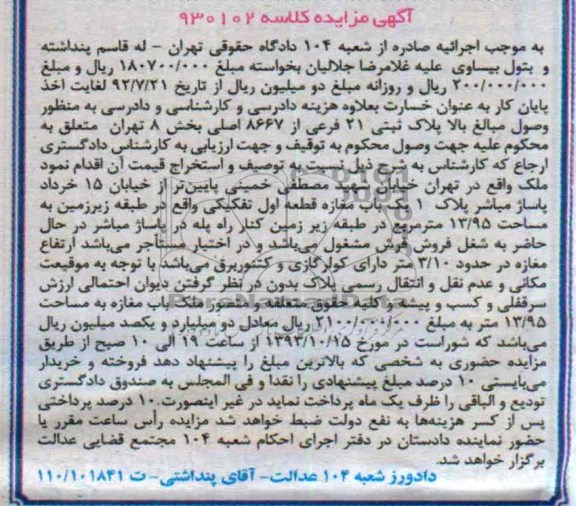 آگهی مزایده کلاسه ۹۳۰۱۰۲
به موجب اجرائیه صادره از شعبه ۱۰۴ دادگاه حقوقی تهران - له قاسم پنداشته
و بتول بیساوی علیه غلامرضا جلالیان بخواسته مبلغ ۱۸۰۷۰۰/۰۰۰ ریال و مبلغ
۲۰۰/۰۰۰/۰۰۰ ریال و روزانه مبلغ دو میلیون ریال از تاریخ ۹۲/۷/۲۱ لغایت اخذ
پایان کار به عنوان خسارت بعلاوه هزینه دادرسی و کارشناسی و دادرسی به منظور
وصول مبالغ بالا پلاک ثبتی ۲۱ فرعی از ۸۶۶۷ اصلی بخش ۸ تهران متعلق به
محکوم علیه جهت وصول محکوم به توقیف و جهت ارزیابی به کارشناس دادگستری
ارجاع که کارشناس به شرح ذیل نسبت به توصیف و استخراج قیمت آن اقدام نمود
ملک واقع در تهران خیابان شهید مصطفی خمینی پایین‌تر از خیابان ۱۵ خرداد
پاساژ مباشر پلاک ۱ یک باب مغازه قطعه اول تفکیکی واقع در طبقه زیرزمین به
مساحت ۱۳/۹۵ مترمربع در طبقه زیر زمین کنار راه پله در پاساژ مباشر در حال
حاضر به شغل فروش فرش مشغول می‌باشد و در اختیار مستأجر می‌باشد ارتفاع
مغازه در حدود ۳/۱۰ متر دارای کولر گازی و کنتوربرق می‌باشد با توجه به موقیعت
مکانی و عدم نقل و انتقال رسمی پلاک بدون در نظر گرفتن دیوان احتمالی ارزش
سرقفلی و کسب و پیشه و کلیه حقوق متعلقه و متصور ملک باب مغازه به مساحت
۱۳/۹۵ متر به مبلغ ۲۱۰۰/۰۰۰/۰۰۰ ریال معادل دو میلیارد و یکصد میلیون ریال
می‌باشد که شوراست در مورخ ۱۳۹۳/۱۰/۱۵ از ساعت ۱۹ الی ۱۰ صبح از طریق
مزایده حضوری به شخصی که بالاترین مبلغ را پیشنهاد دهد فروخته و خریدار
می‌بایستی ۱۰ درصد مبلغ پیشنهادی را نقدا و فی المجلس به صندوق دادگستری
تودیع و الباقی را ظرف یک ماه پرداخت نماید در غیر اینصورت ۱۰ درصد پرداختی
پس از کسر هزینه‌ها به نفع دولت ضبط خواهد شد مزایده رأس ساعت مقرر با
حضور نماینده دادستان در دفتر اجرای احکام شعبه ۱۰۴ مجتمع قضایی عدالت
برگزار خواهد شد.
دادورز شعبه ۱۰۴ عدالت- آقای پنداشتی- ت ۱۱۰/۱۰۱۸۴۱